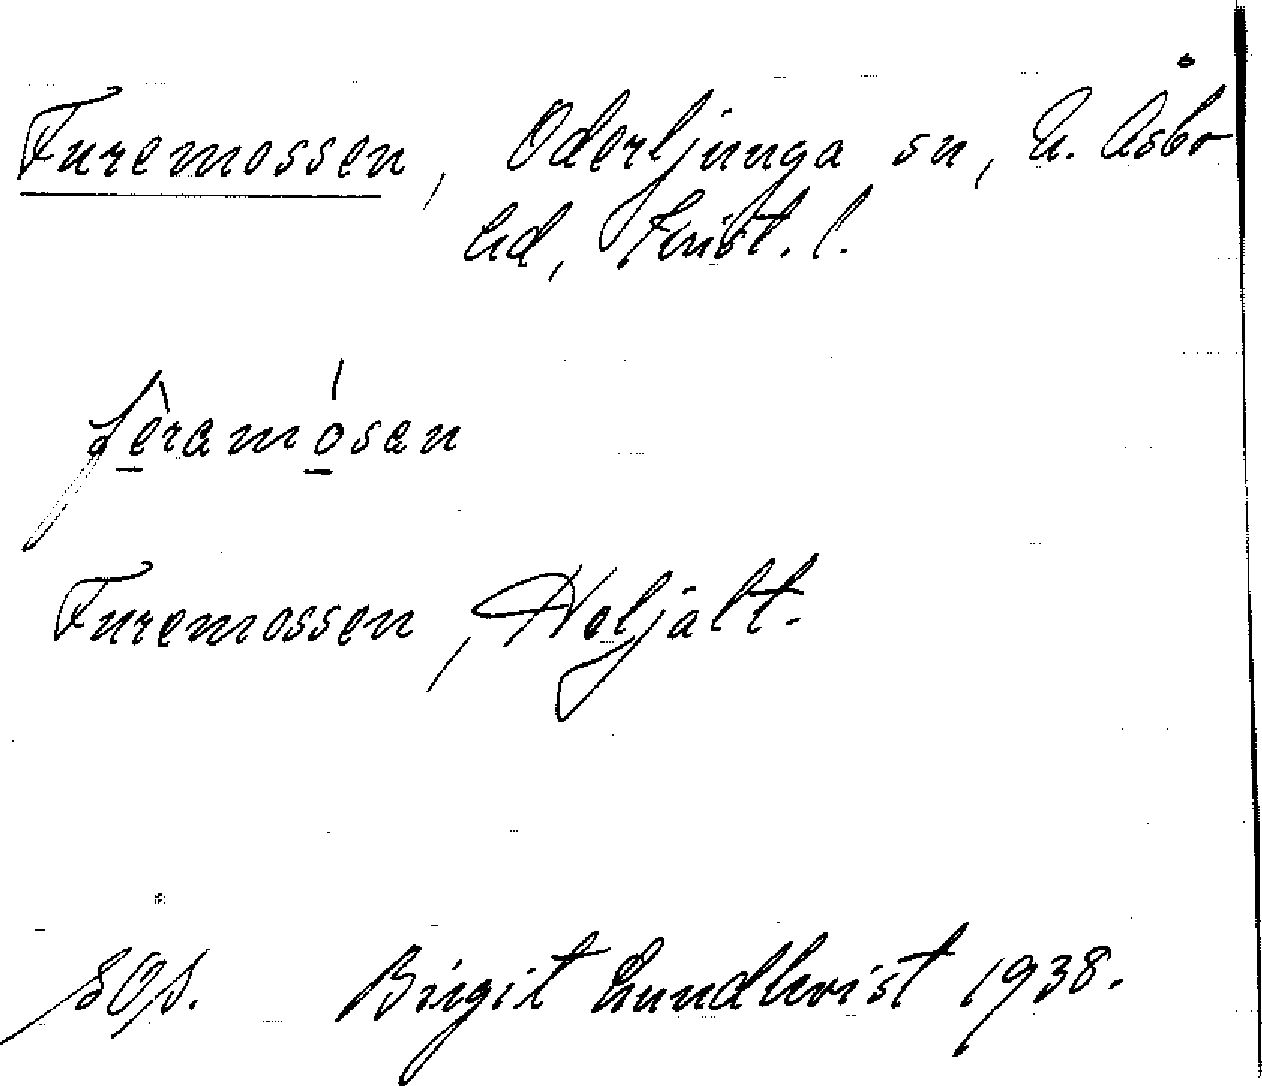 Furemossen, Oderljunga sn, N. Åsbo
hd, Krist. l.
fêramósen
Furemossen, Weljalt.
Birgit Lundkvist 1938.